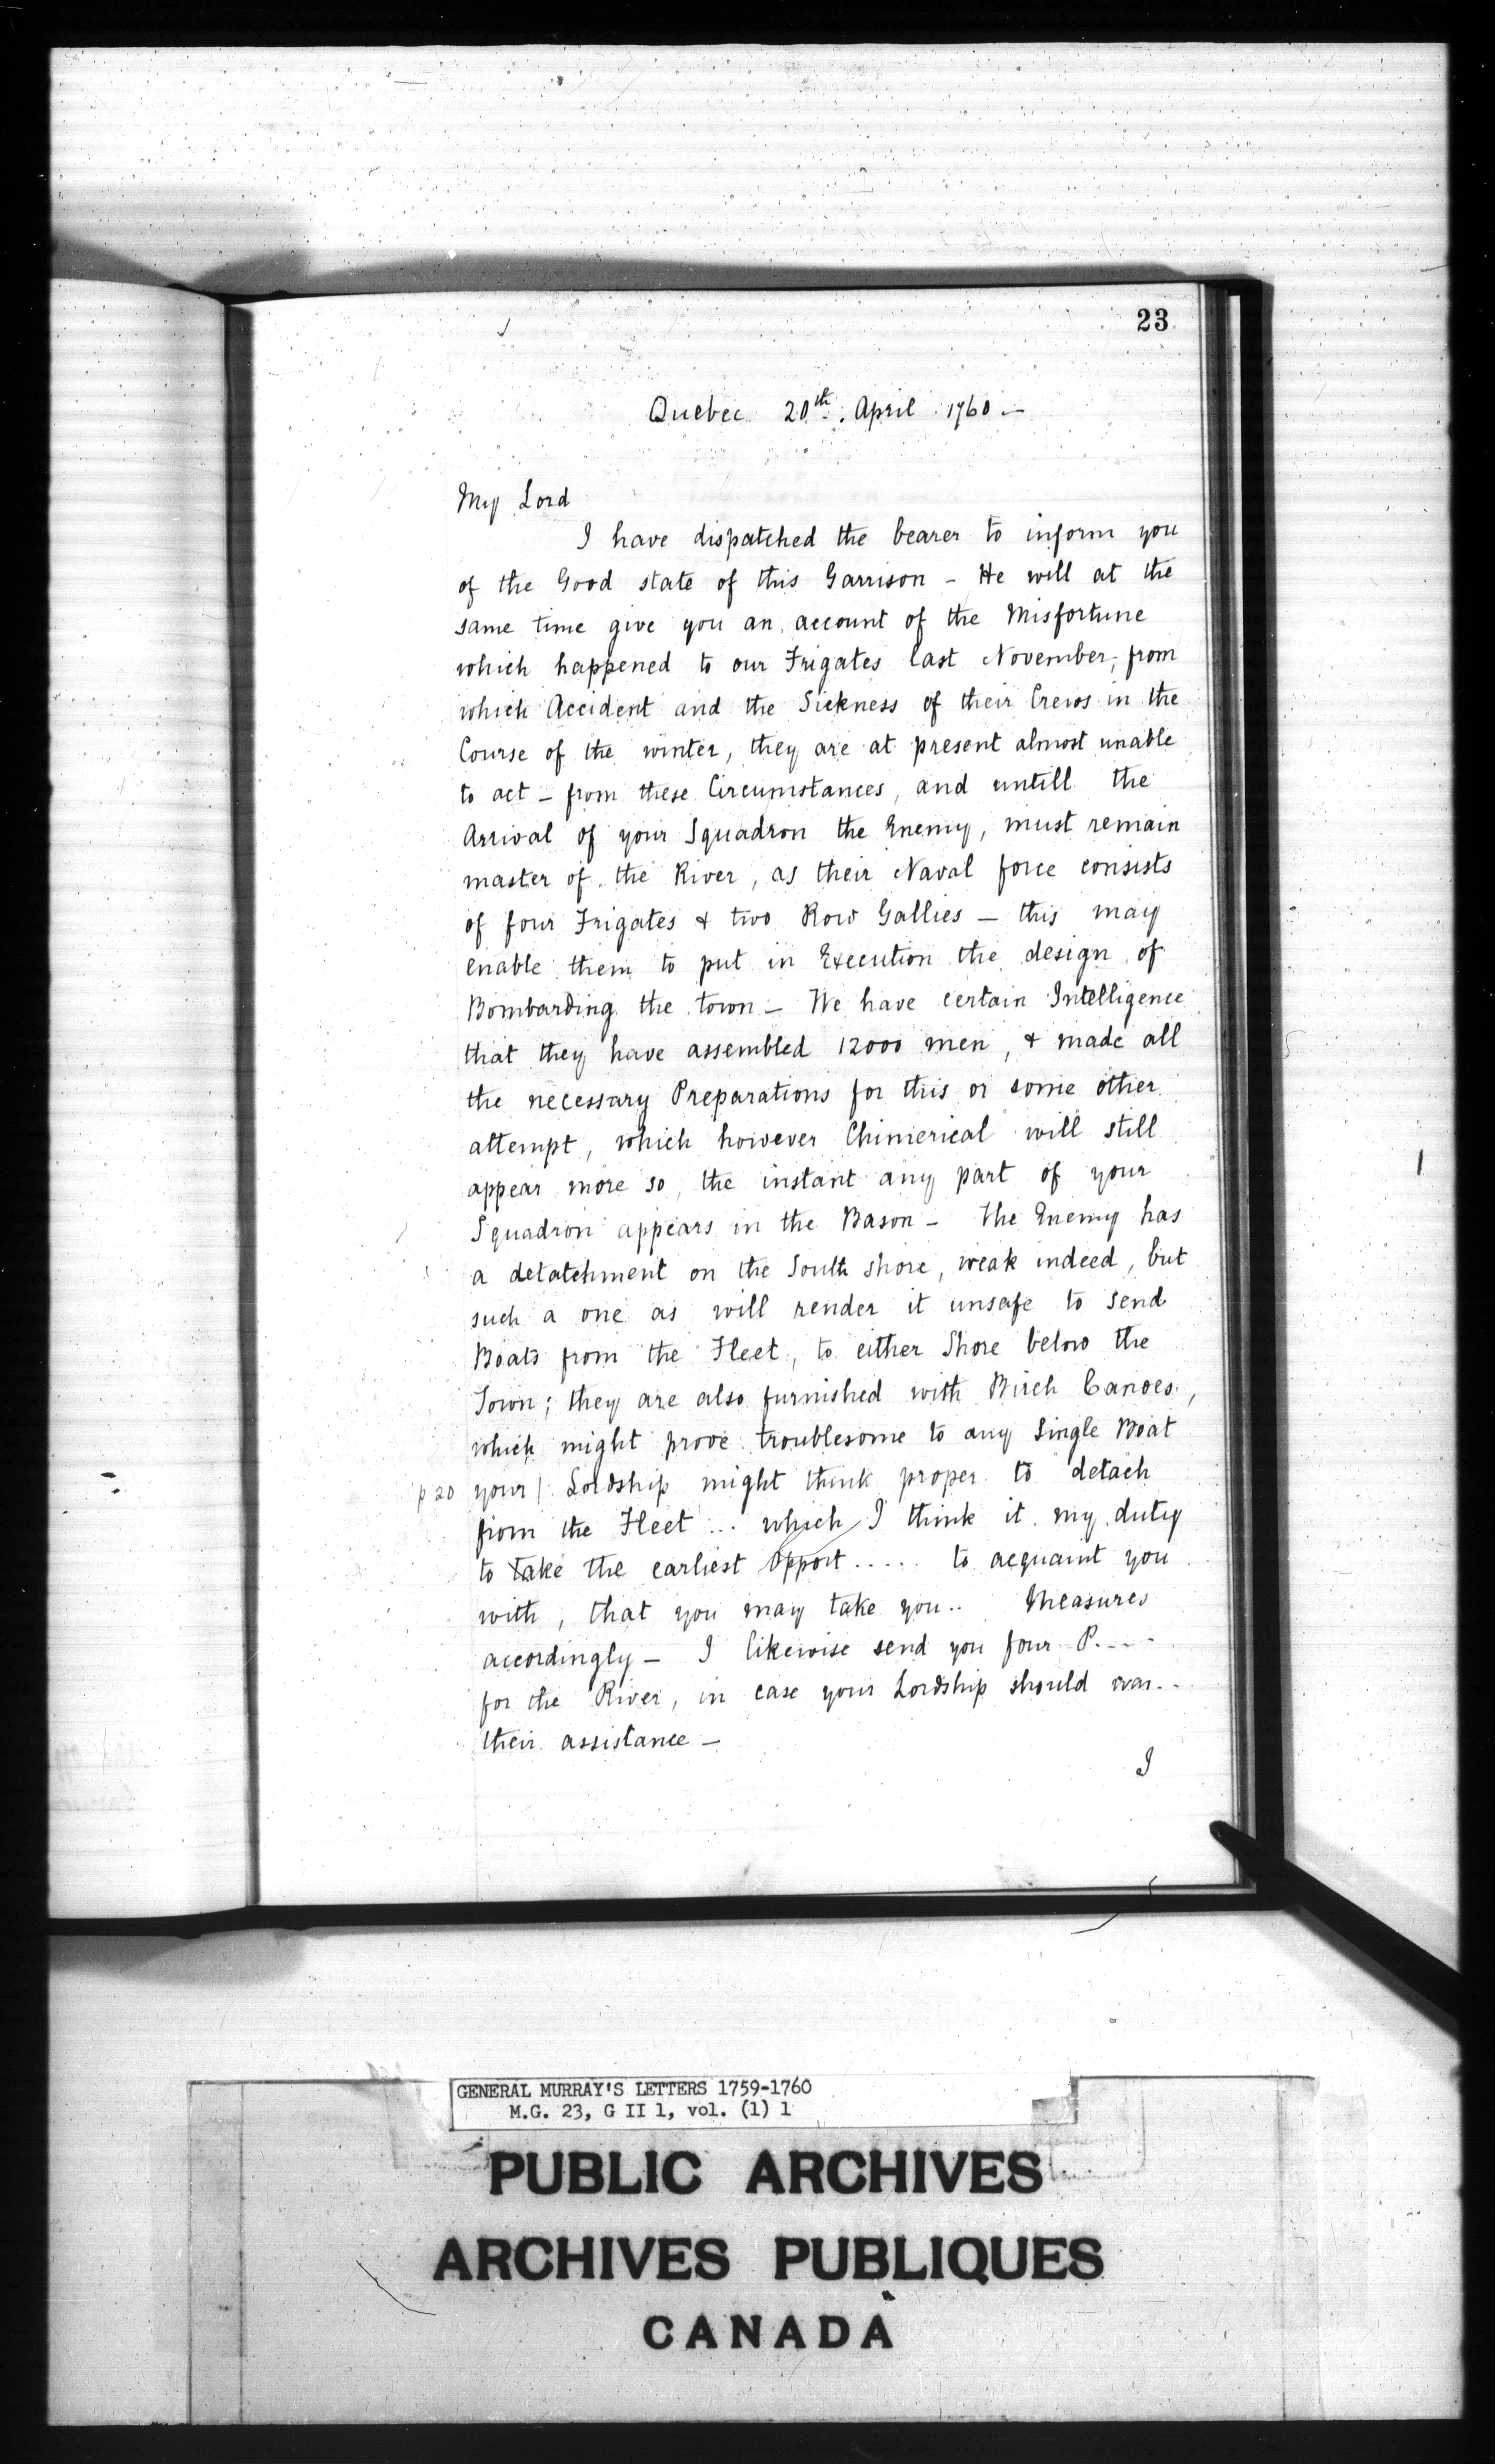 23
Quebec 20th. April 1760 –
My Lord
I have dispatched the bearer to inform you
of the Good state of this Garrison – He will at the
same time give you an account of the Misfortune
which happened to our Frigates last November, from
which Accident and the Sickness of their Crews in the
Course of the winter, they are at present almost unable
to act – from these Circumstances, and untill the
Arrival of your Squadron the Enemy, must remain
master of the River, as their Naval force consists
of four Frigates & two Row Gallies – this may
enable them to put in Execution the design of
Bombarding the town – We have certain Intelligence
that they have assembled 12000 men, & made all
the necessary Preparations for this or some other
attempt, which however Chimerical will still
appear more so, the instant any part of your
Squadron appears in the Bason – The Enemy has
a detatchment on the South shore, weak indeed, but
such a one as will render it unsafe to send
Boats from the Fleet, to either Shore below the
Town; they are also furnished with Birch Canoes,
which might prove troublesome to any Single Boat
p 20 your | Lordship might think proper to detach
from the Fleet ... which I think it my duty
to take the earliest Opport ..... to acquaint you
with, that you may take you.. Measures
accordingly – I likewise send you four P....
for the River, in case your Lordship should wan..
their assistance –
I
GENERAL MURRAY'S LETTERS 1759-1760
M.G. 23, G II 1, vol. (1) 1
PUBLIC ARCHIVES
ARCHIVES PUBLIQUES
CANADA